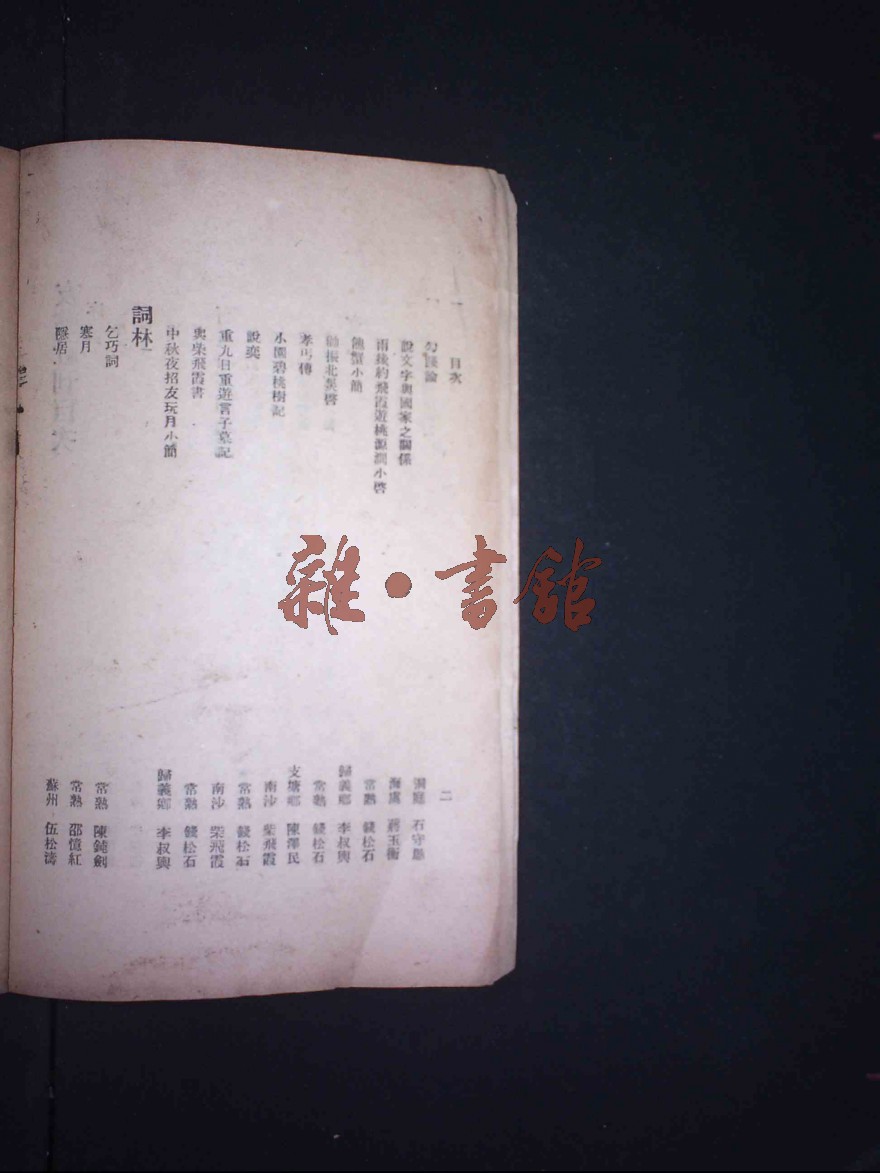 目次
二
論 洞庭 石守愚
說文字與國家之關係 海虞 蔣玉衡
雨後約飛霞遊桃源澗小啓 常熟 錢松石
蟹小簡 歸義鄉 李叔輿
振北吳啓 常熟 錢松石
孝丐傳 支塘鄉 陳澤民
小園碧桃樹記 南沙 柴飛霞
說奕 常熟 錢松石
重九日重遊言子墓記 南沙 柴飛霞
與柴飛霞書 常熟 錢松石
中秋夜招友玩月小簡 歸義鄉 李叔輿
詞林
乞巧詞 常熟 陳鈍劍
寒月 常熟 邵憶紅
隱居 蘇州 伍松濤
雜·書館